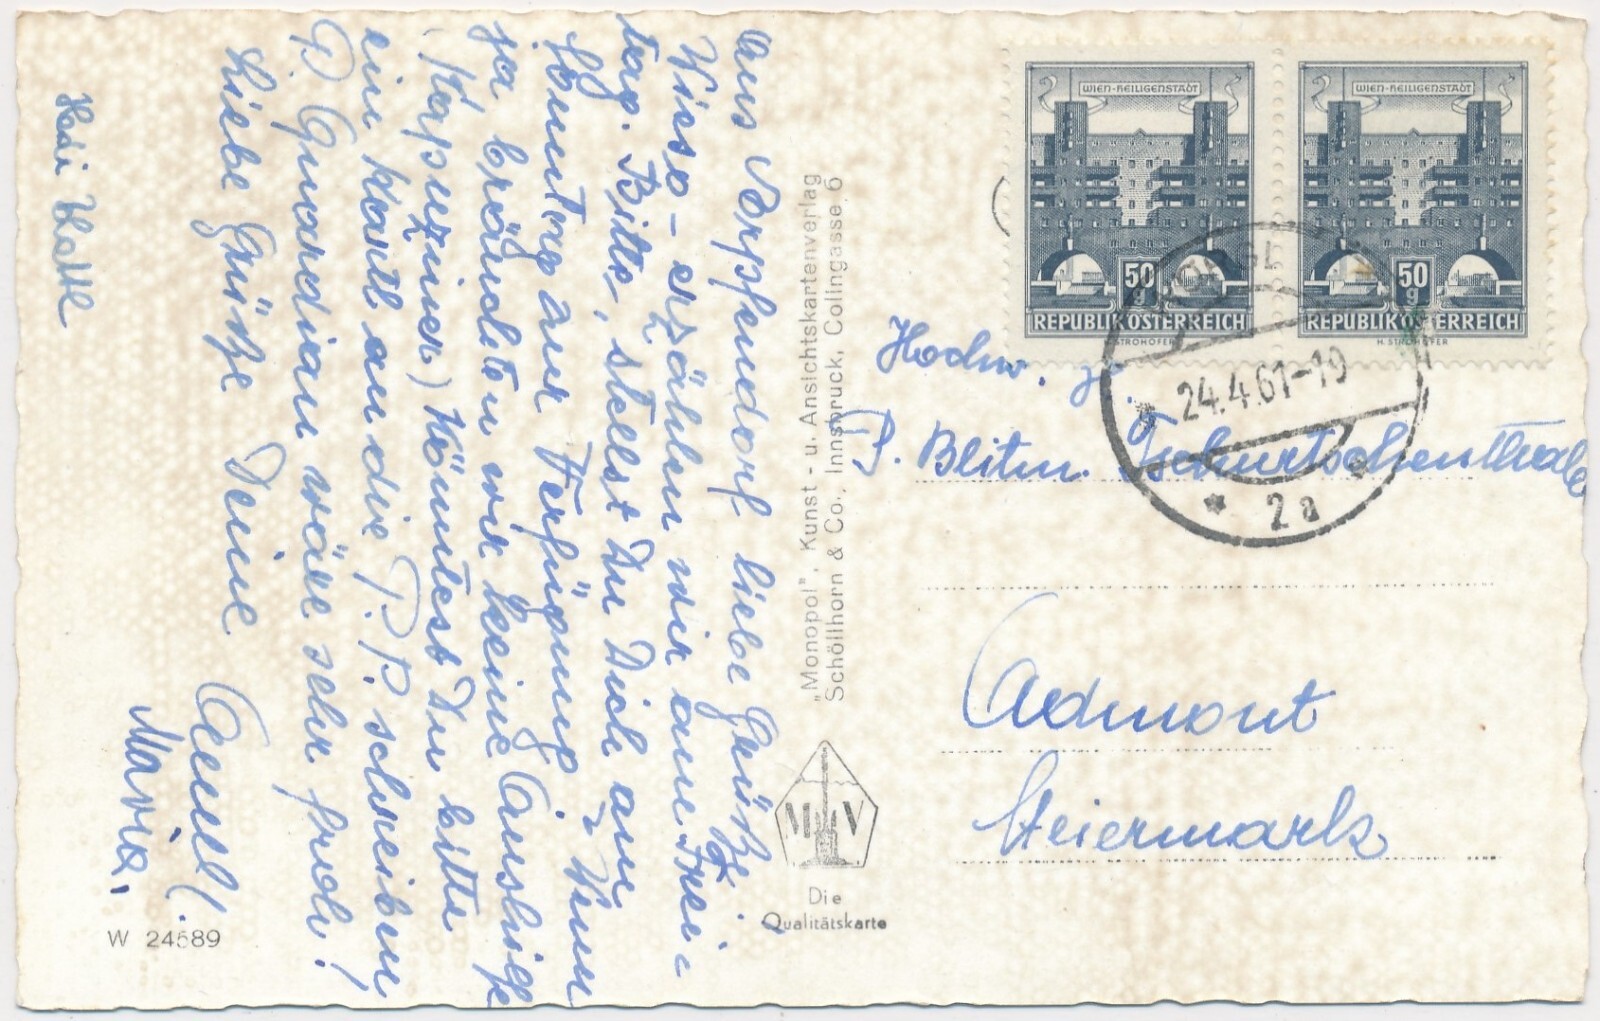 Aus Vorpfendorf liebe Grüße.
Wieso - erzählen wir am Frei=
tag. Bitte, stellst Du Dich am
Sonntag zur Verfügung? Nun
ja bräuchten wir keine Aushilfe
(Kapuziner) Könntest Du bitte
ein Kartl an die P.P. schreiben
P. Guardian wäre sehr froh!
Liebe Grüße Deine Annel.
Maria.
Hedi
W 24689
"Monopol", Kunst - u. Ansichtskartenverlag
Schöllhorn & Co., Innsbruck, Colingasse 6
M V
Die
Qualitätskarte
WIEN-HEILIGENSTADT
50
g
REPUBLIK ÖSTERREICH
H. STROHOFER
WIEN-HEILIGENSTADT
50
g
REPUBLIK ÖSTERREICH
H. STROHOFER
24.4.61-19
2a
Hochw.
P. Blitm. Tschurtschenthaler
Admont
Steiermark